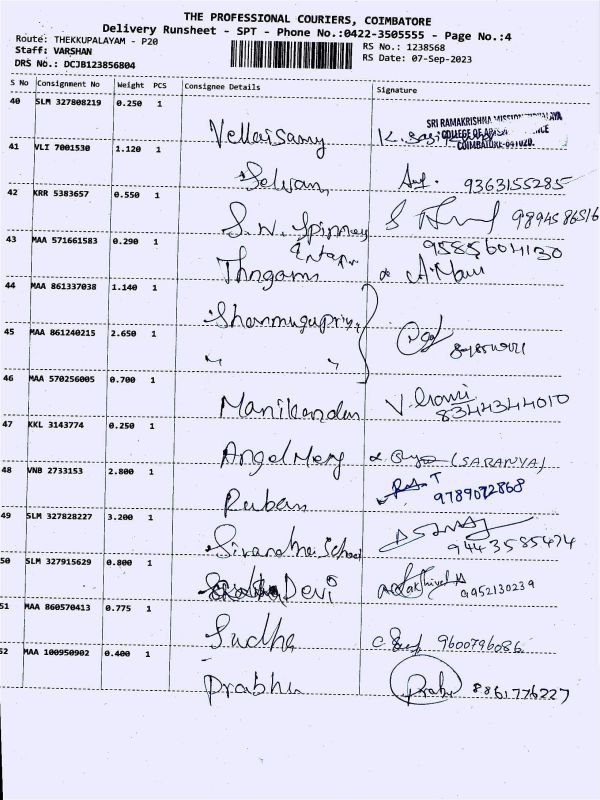 THE PROFESSIONAL COURIERS, COIMBATORE
Delivery Runsheet - SPT - Phone No.:0422-3505555 - Page No.:4
Route: THEKKUPALAYAM - P20
RS No.: 1238568
Staff: VARSHAN
RS Date: 07-Sep-2023
DRS No.: DCJB123856804
S No Consignment No Weight PCS Consignee Details Signature
40 SLM 327808219 0.250 1
SRI RAMAKRISHNA MISSION
COLLEGE OF
COIMBATORE-641020.
Vellaisamy K.
41 VLI 7001530 1.120 1
Selvam 9363155285
42 KRR 5383657 0.550 1
S. N. Spinney 9894586516
43 MAA 571661583 0.290 1
9585604130
Thngam A. Mani
44 MAA 861337038 1.140 1
Shanmugapriya
45 MAA 861240215 2.650 1
" "
46 MAA 570256005 0.700 1
Manikandan V. 8344344010
47 KKL 3143774 0.250 1
Angel Mery (SARANYA)
48 VNB 2733153 2.800 1
Ruban 9789072868
49 SLM 327828227 3.200 1
School 9443585474
50 SLM 327915629 0.800 1
Devi Sakthivel 9952130239
51 MAA 860570413 0.775 1
Sudha 9600796086
52 MAA 100950902 0.400 1
Prabhu Prabu 8861776227